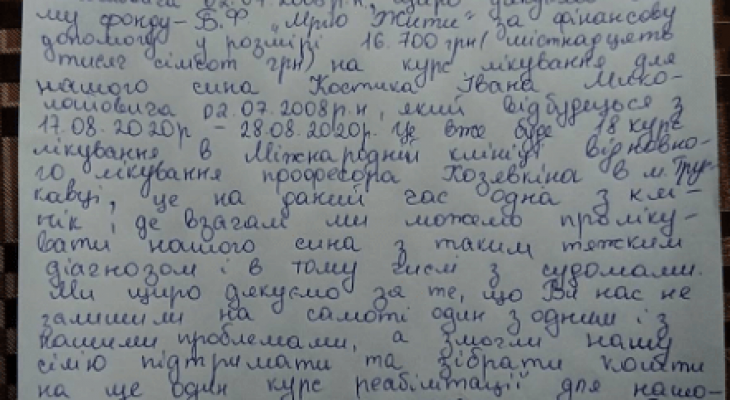 02.07.2008р.н., щиро
му фонду - Б.Ф „Мрію Жити" за фінансову
допомогу у розмірі 16.700 грн (шістнадцять
тисяч сімсот грн) на курс лікування для
нашого сина Костика Івана Мико-
лайовича 02.07.2008р.н, який відбудеться з
17.08.2020р - 28.08.2020р. Це вже буде 18 курс
лікування в Міжнародній клініці відновно-
го лікування професора Козявкіна в м. Тру-
кавці, це на даний час одна з клі-
нік, де взагалі ми можемо проліку-
вати нашого сина з таким тяжким
діагнозом і в тому числі з судомами.
Ми щиро дякуємо за те, що Ви нас не
залишили на самоті один з одним і з
нашими проблемами, а змогли нашу
сім'ю підтримати та зібрати кошти
на ще один курс реабілітації для нашо-